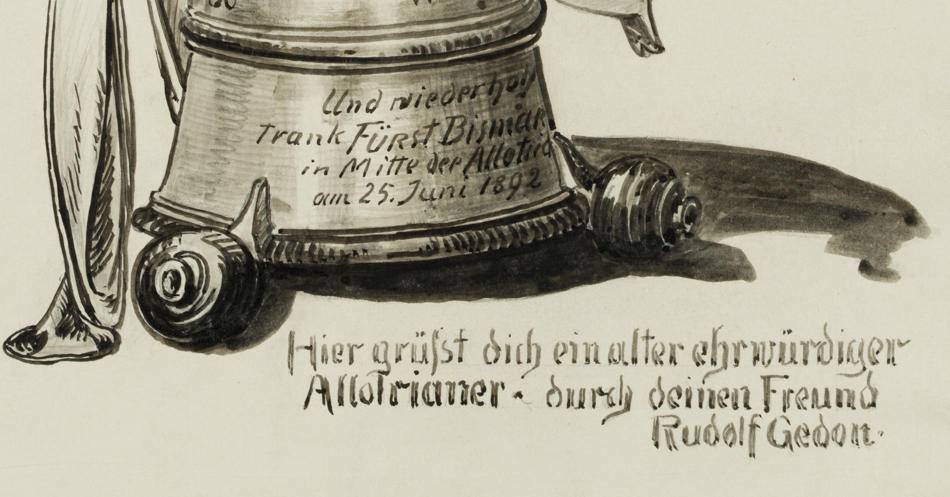 Und wiederholt
Trank Fürst Bismark
in Mitte der Allotria
am 25. Juni 1892
Hier grüßt dich ein alter ehrwürdiger
Allotrianer - durch deinen Freund
Rudolf Gedon.